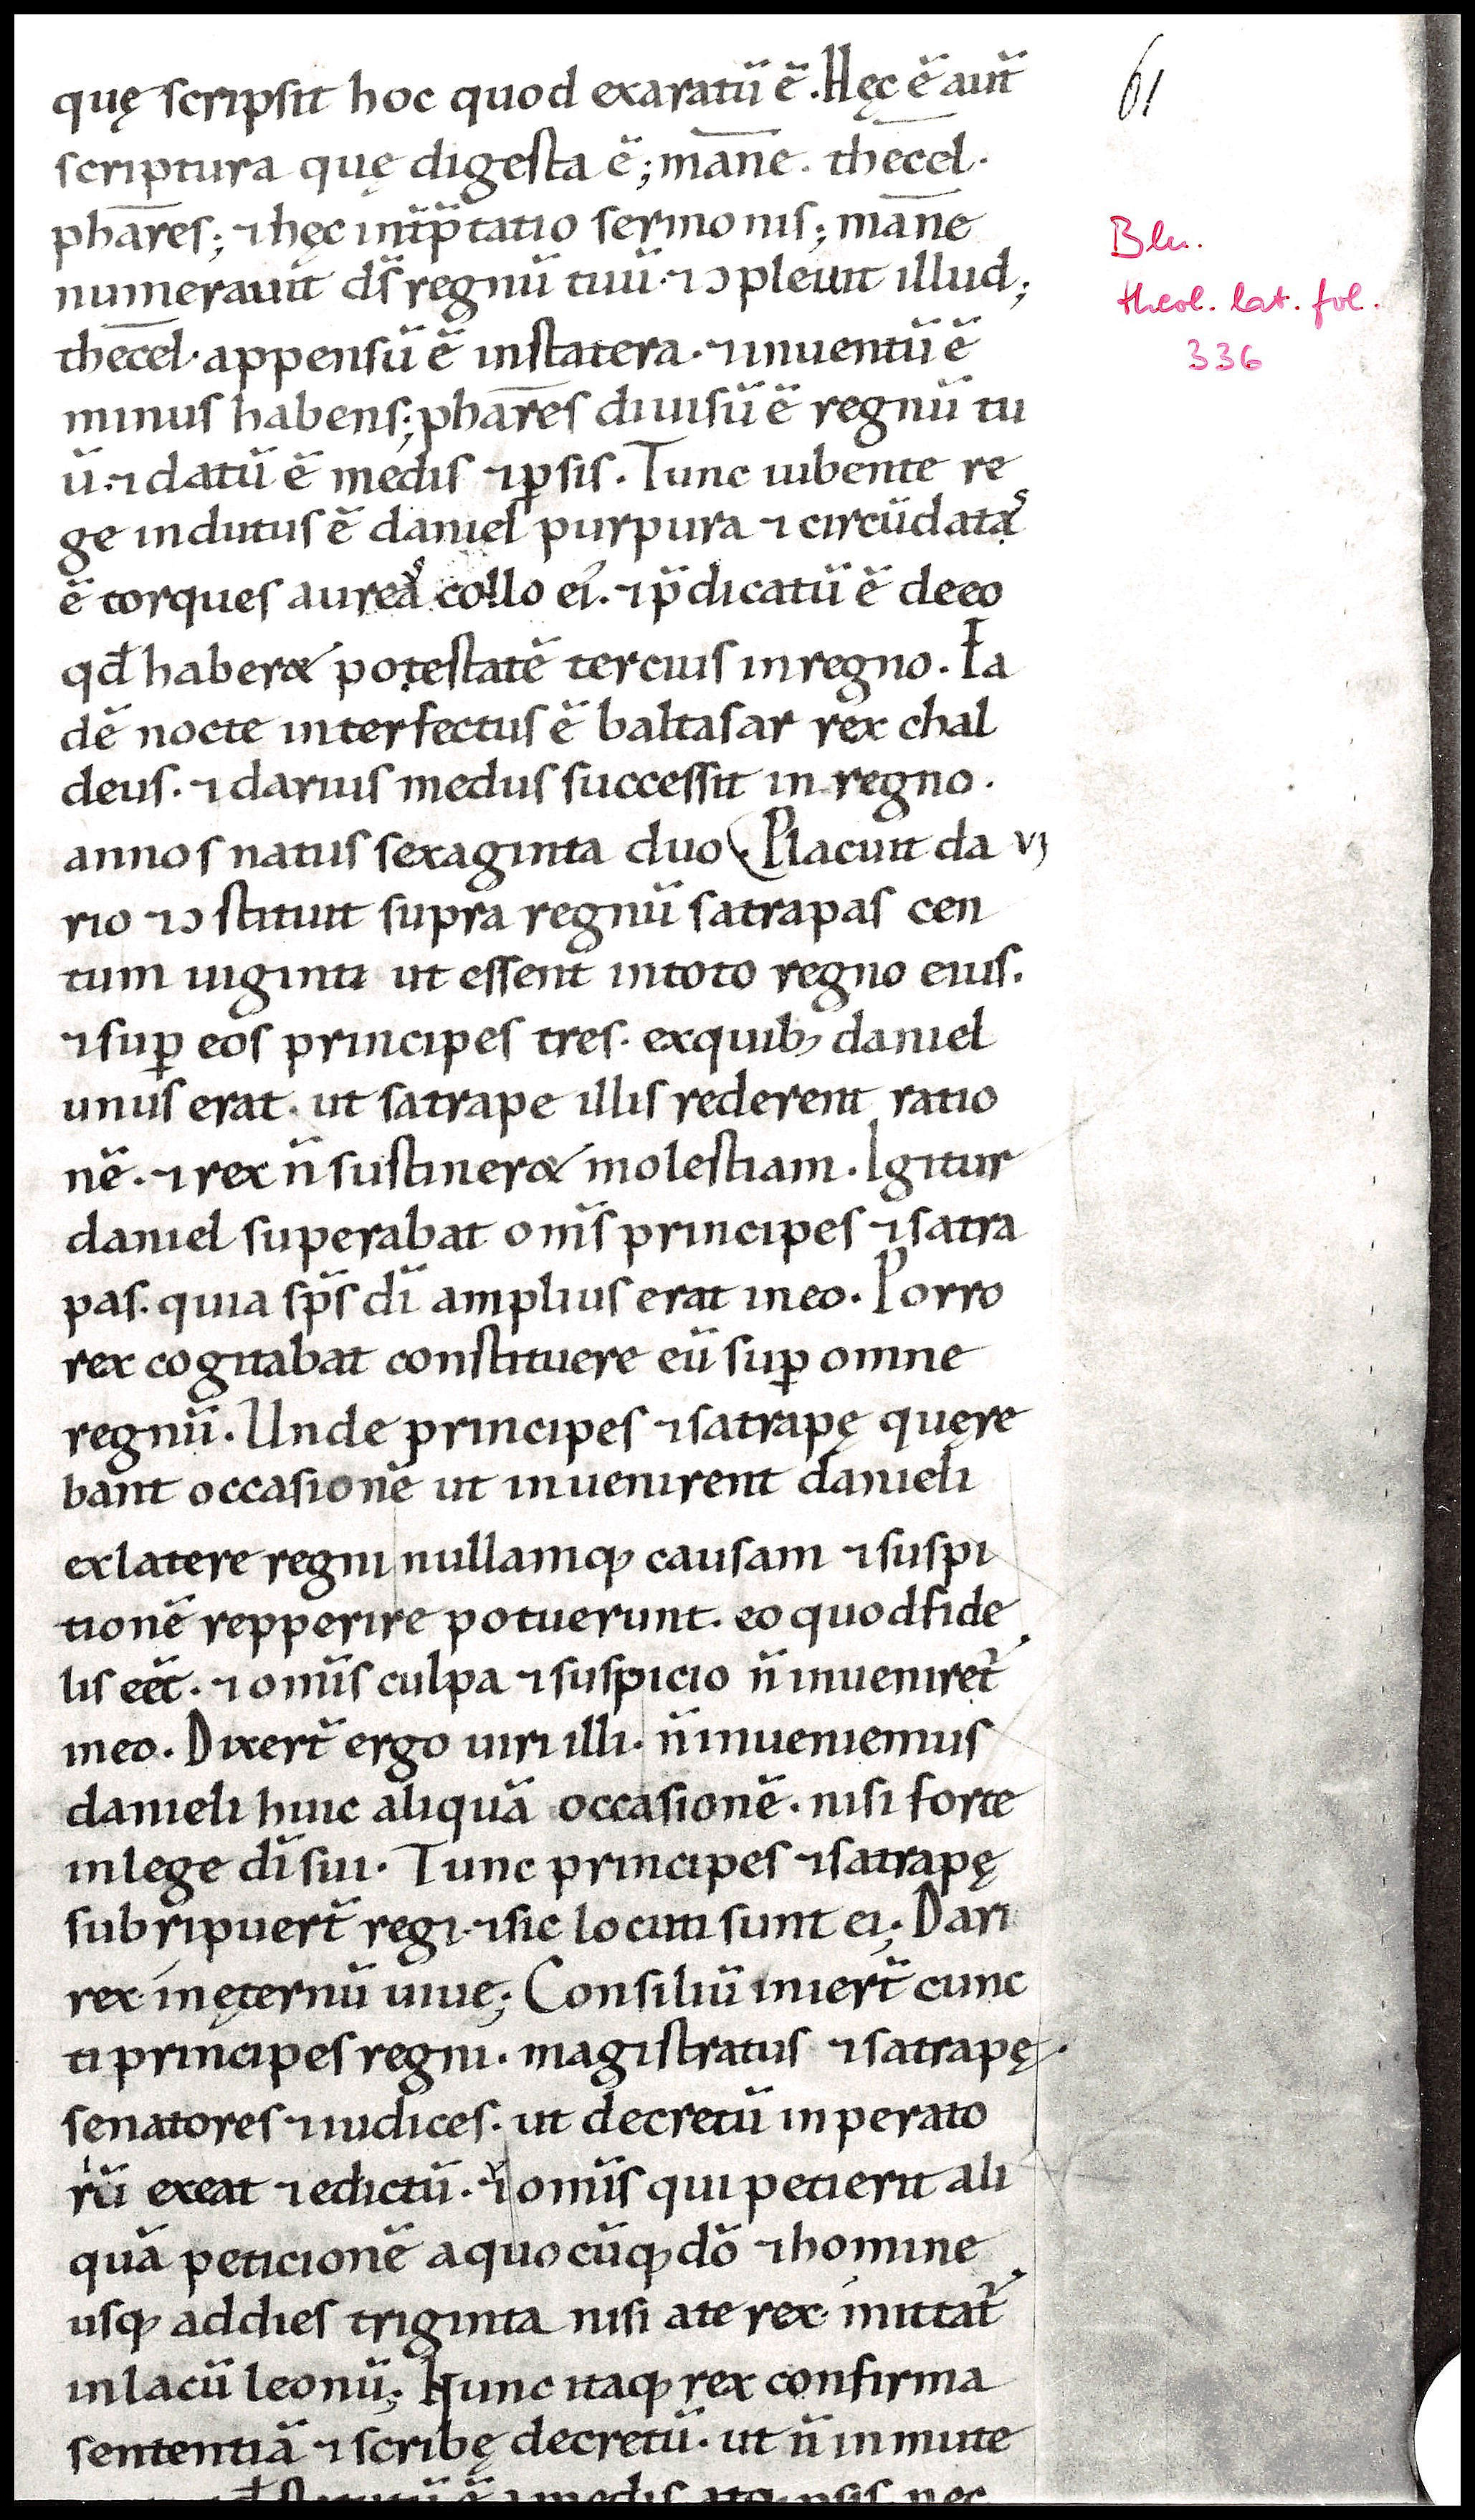 61
Bln.
theol. lat. fol.
336
quę scripsit hoc quod exaratū ē. Hęc ē aut̄
scriptura quę digesta ē; mane. thecel.
phares; ⁊ hęc int̄p̄tatio sermonis; mane
numerauit ds̄ regnū tuū. ⁊ ↄpleuit illud;
thecel. appensū ē instatera. ⁊ inuentū ē
minus habens; phares diuisū ē regnū tu
ū. ⁊ datū ē medis ⁊ ꝑsis. Tunc iubente re
ge indutus ē daniel purpura ⁊ circūdatạˢ
ē torques aureạˢ collo eiꝰ. ⁊ p̄dicatū ē deeo
qd̄ haber& potestatē tercius inregno. Ea
dē nocte interfectus ē baltasar rex chal
deus. ⁊ darius medus successit in regno.
annos natus sexaginta duo. Placuit da vj
rio ⁊ ↄstituit supra regnū satrapas cen
tum uiginti ut essent intoto regno eius.
⁊ suꝑ eos principes tres. exquib; daniel
unus erat. ut satrape illis rederent ratio
nē. ⁊ rex n̄ sustiner& molestiam. Igitur
daniel superabat om̄s principes ⁊ satra
pas. quia sp̄s dī amplius erat ineo. Porro
rex cogitabat constituere eū suꝑ omne
regnū. Unde principes ⁊ satrapę quęre
bant occasionē ut inuenirent danieli
exlatere regni nullamq; causam ⁊ suspi
tionē repperire potuerunt. eo quod fide
lis eēt. ⁊ om̄is culpa ⁊ suspicio n̄ inueniret̄
ineo. Dixert̄ ergo uiri illi. n̄ inueniemus
danieli huic aliquā occasionē. nisi forte
inlege dī sui. Tunc principes ⁊ satrapę
subripuert̄ regi. ⁊ sic locuti sunt ei; Dari
rex inęternū uiuę; Consiliū iniert̄ cunc
ti principes regni. magistratus ⁊ satrapę.
senatores ⁊ iudices. ut decretū inperato
rū exeat ⁊ edictū. ⁊ om̄is qui petierit ali
quā peticionē aquocūq; dō ⁊ homine
usq; addies triginta nisi ate rex mittat̄
inlacū leonū; Nunc itaq; rex confirma
sententiā ⁊ scribę decretū. ut n̄ inmute